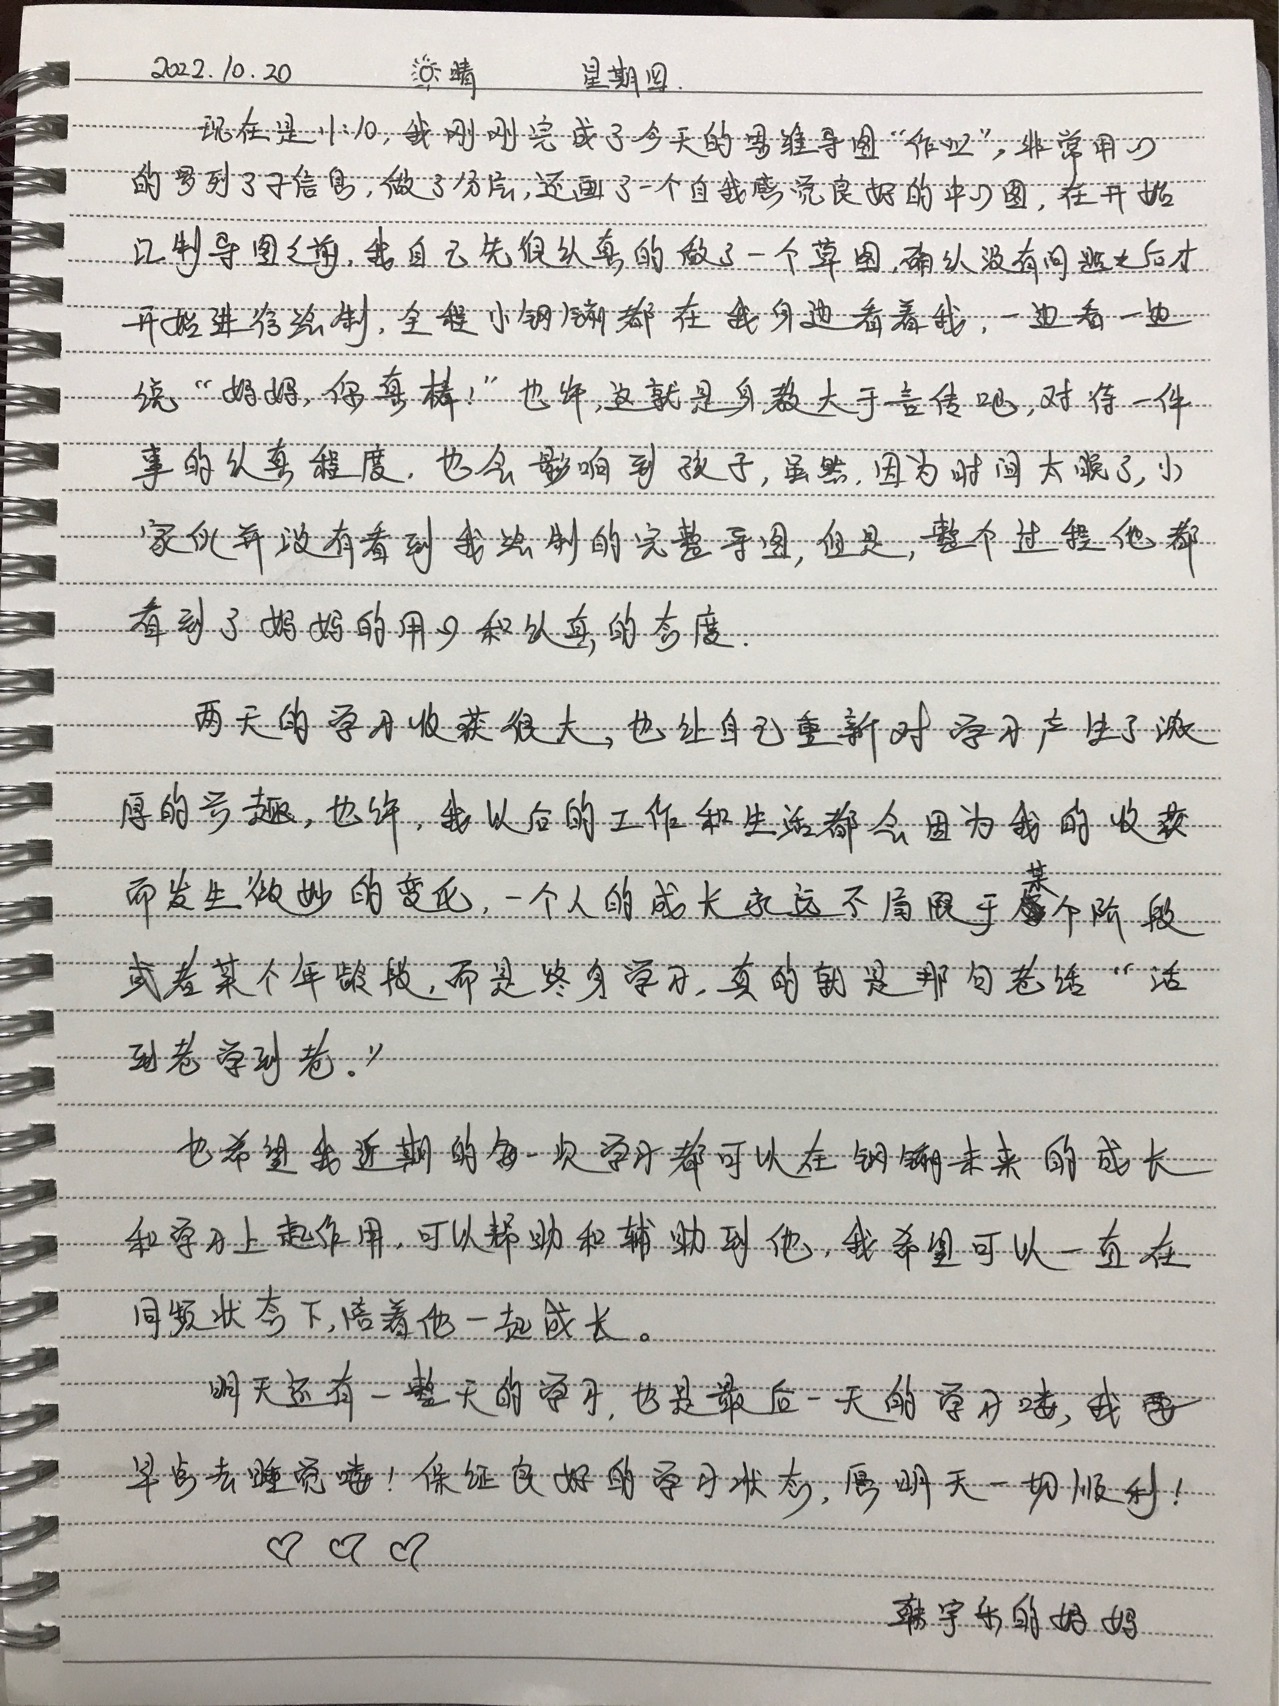 2022.10.20 晴 星期四.
现在是11:10,我刚刚完成了今天的思维导图“作业”,非常用心
的罗列了子信息,做了分层,还画了一个自我感觉良好的中心图,在开始
制导图之前,我自己先很认真的做了一个草图,确认没有问题之后才
开始进行绘制,全程小钢镚都在我身边看着我,一边看一边
说“妈妈,你真棒!”也许,这就是身教大于言传吧,对待一件
事的认真程度,也会影响到孩子,虽然,因为时间太晚了,小
家伙并没有看到我绘制的完整导图,但是,整个过程他都
看到了妈妈的用心和认真的态度.
两天的学习收获很大,也让自己重新对学习产生了浓
厚的兴趣,也许,我以后的工作和生活都会因为我的收获
而发生微妙的变化,一个人的成长永远不局限于某个阶段
或者某个年龄段,而是终身学习,真的就是那句老话“活
到老学到老。”
也希望我近期的每一次学习都可以在钢镚未来的成长
和学习上起作用,可以帮助和辅助到他,我希望可以一直在
同频状态下,陪着他一起成长。
明天还有一整天的学习,也是最后一天的学习喽,我要
早点去睡觉喽!保证良好的学习状态,愿明天一切顺利!
韩宇乐的妈妈